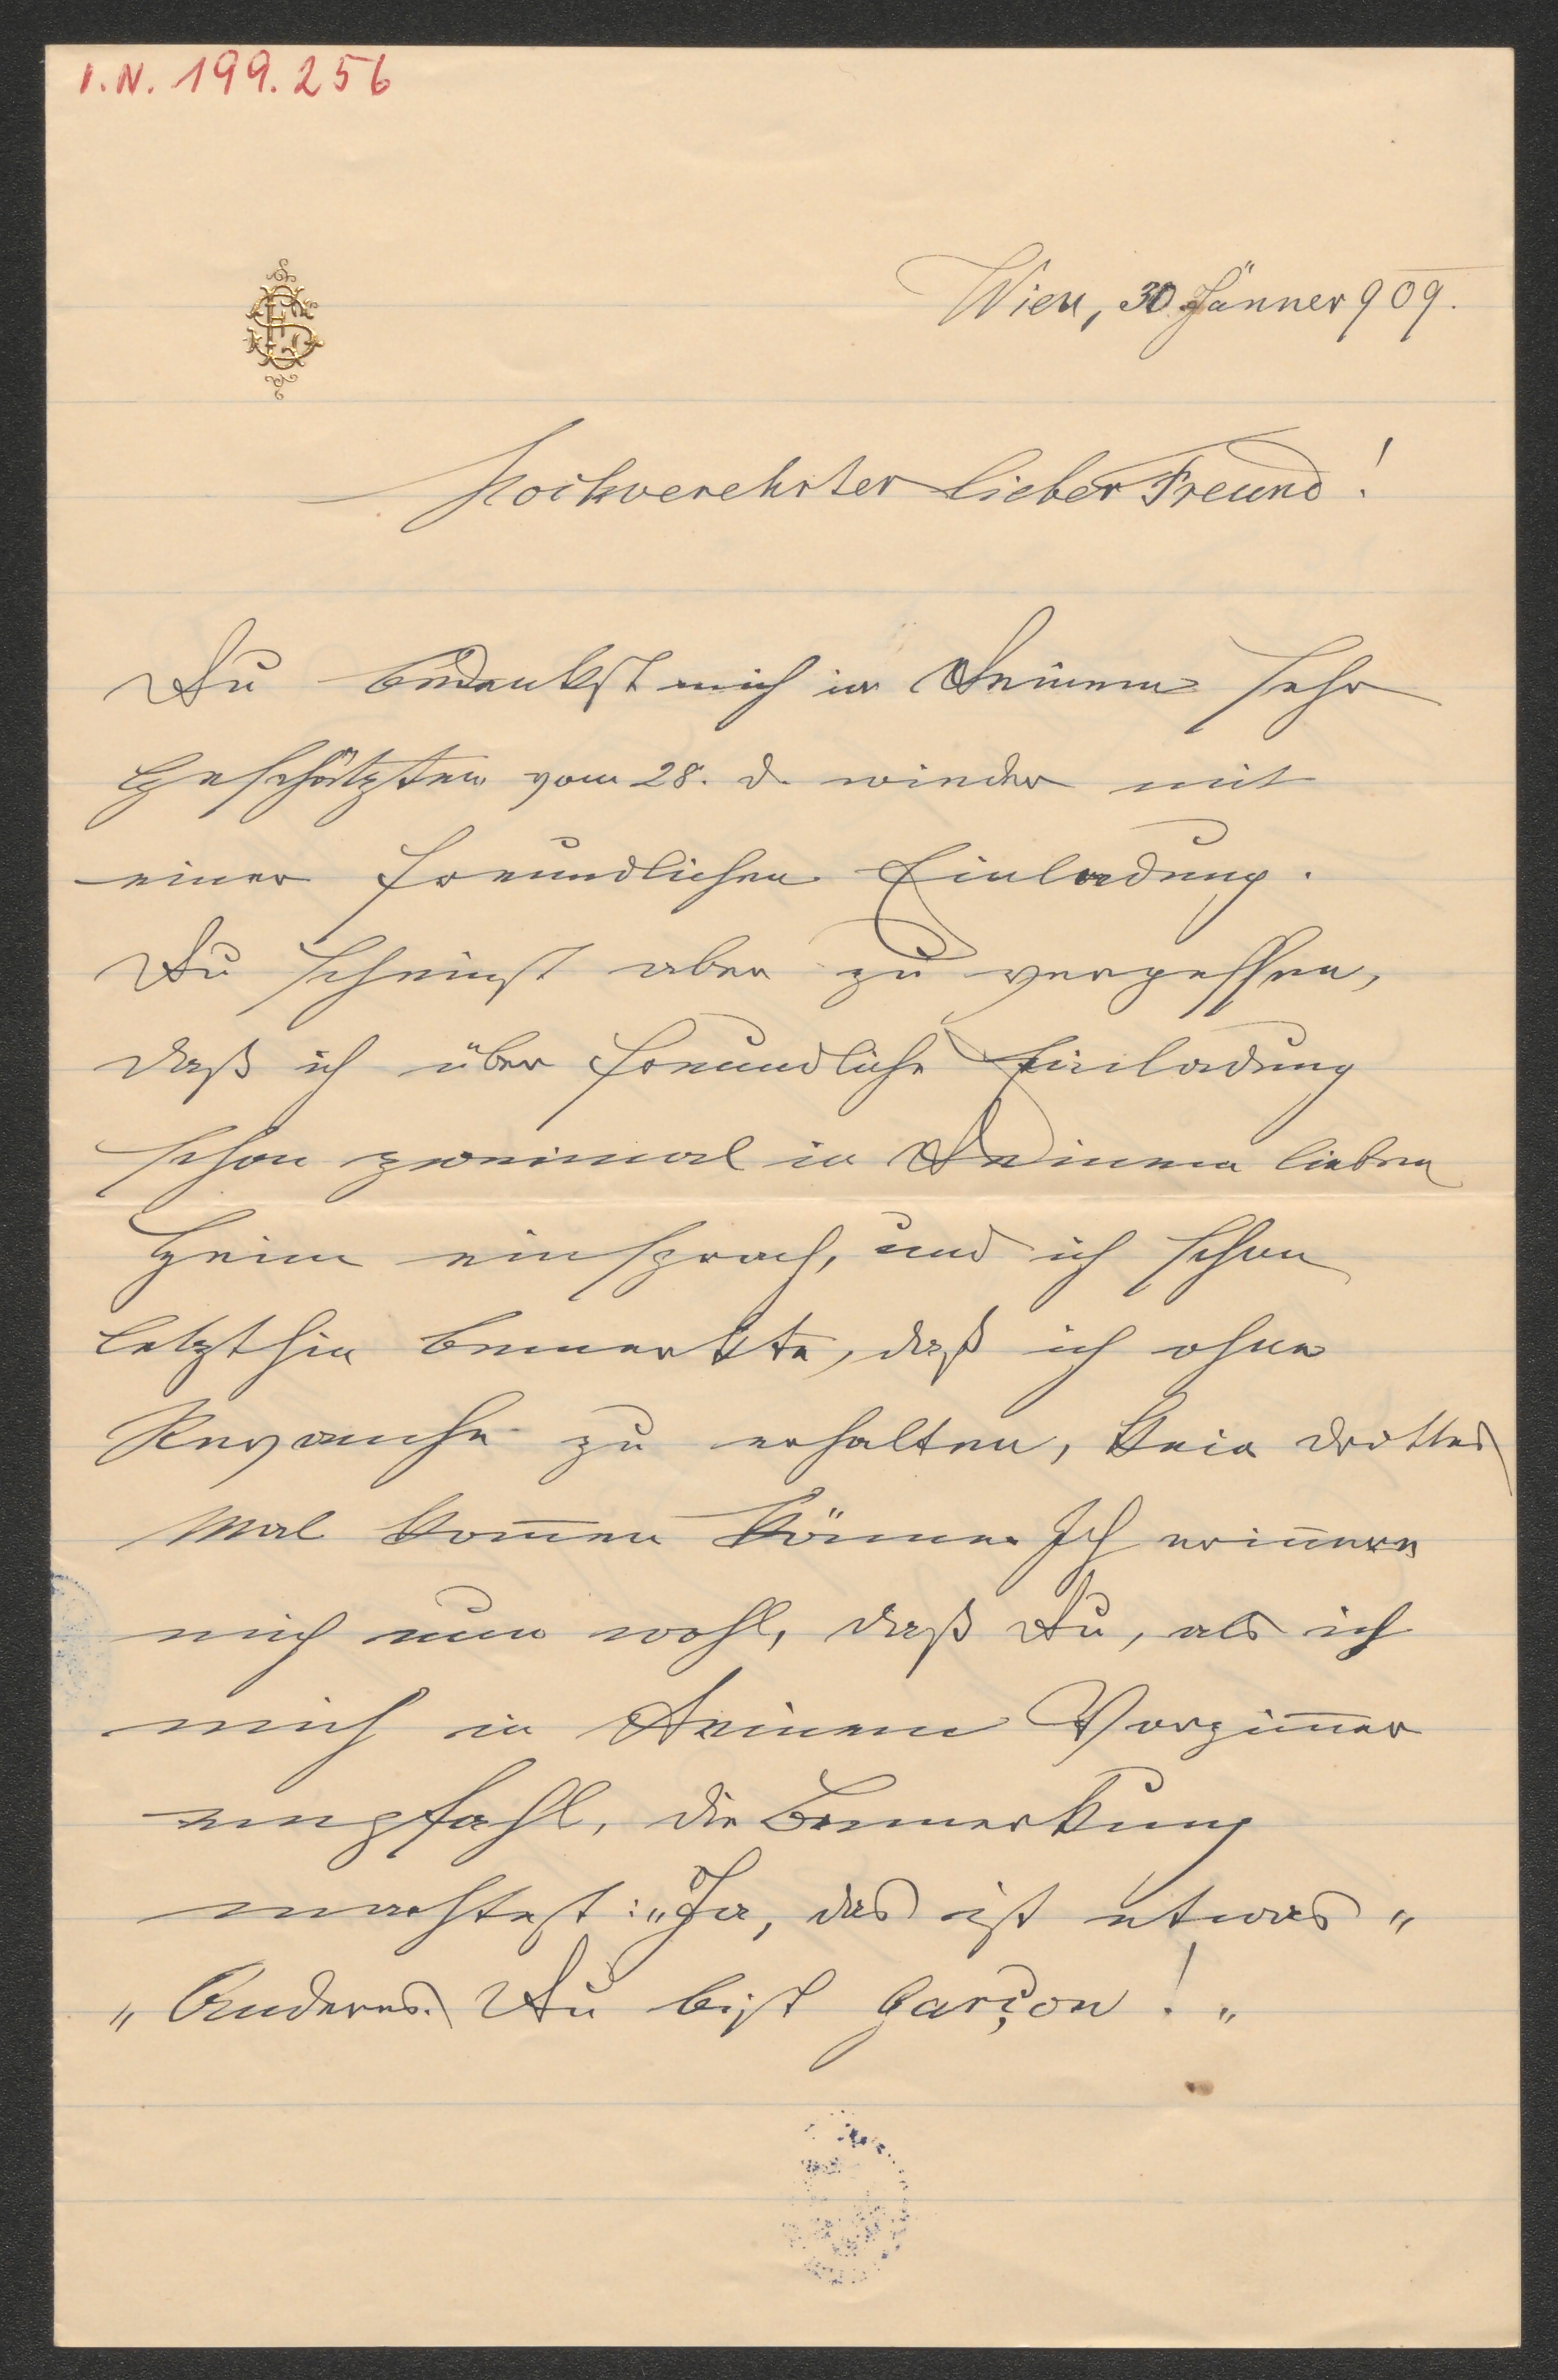 I.N. 199.256
Wien, 30. Jänner 909.
Hochverehrter lieber Freund!
Du bedenkst mich in Deinem sehr
Geschätzten vom 28. d. wieder mit
einer freundlichen Einladung.
Du scheinst aber zu vergessen,
daß ich über freundliche Einladung
schon zweimal in Deinem lieben
Heim einsprach, und ich schon
letzthin bemerkte, daß ich ohne
Revanche zu erhalten, kein drittes
Mal kom̄en könne. Ich erin̄ere
mich nun wohl, daß Du, als ich
mich in Deinem Vorzim̄er
empfahl, die Bemerkung
machtest: „Ja, das ist etwas „
„ Anderes. Du bist Garçon! „